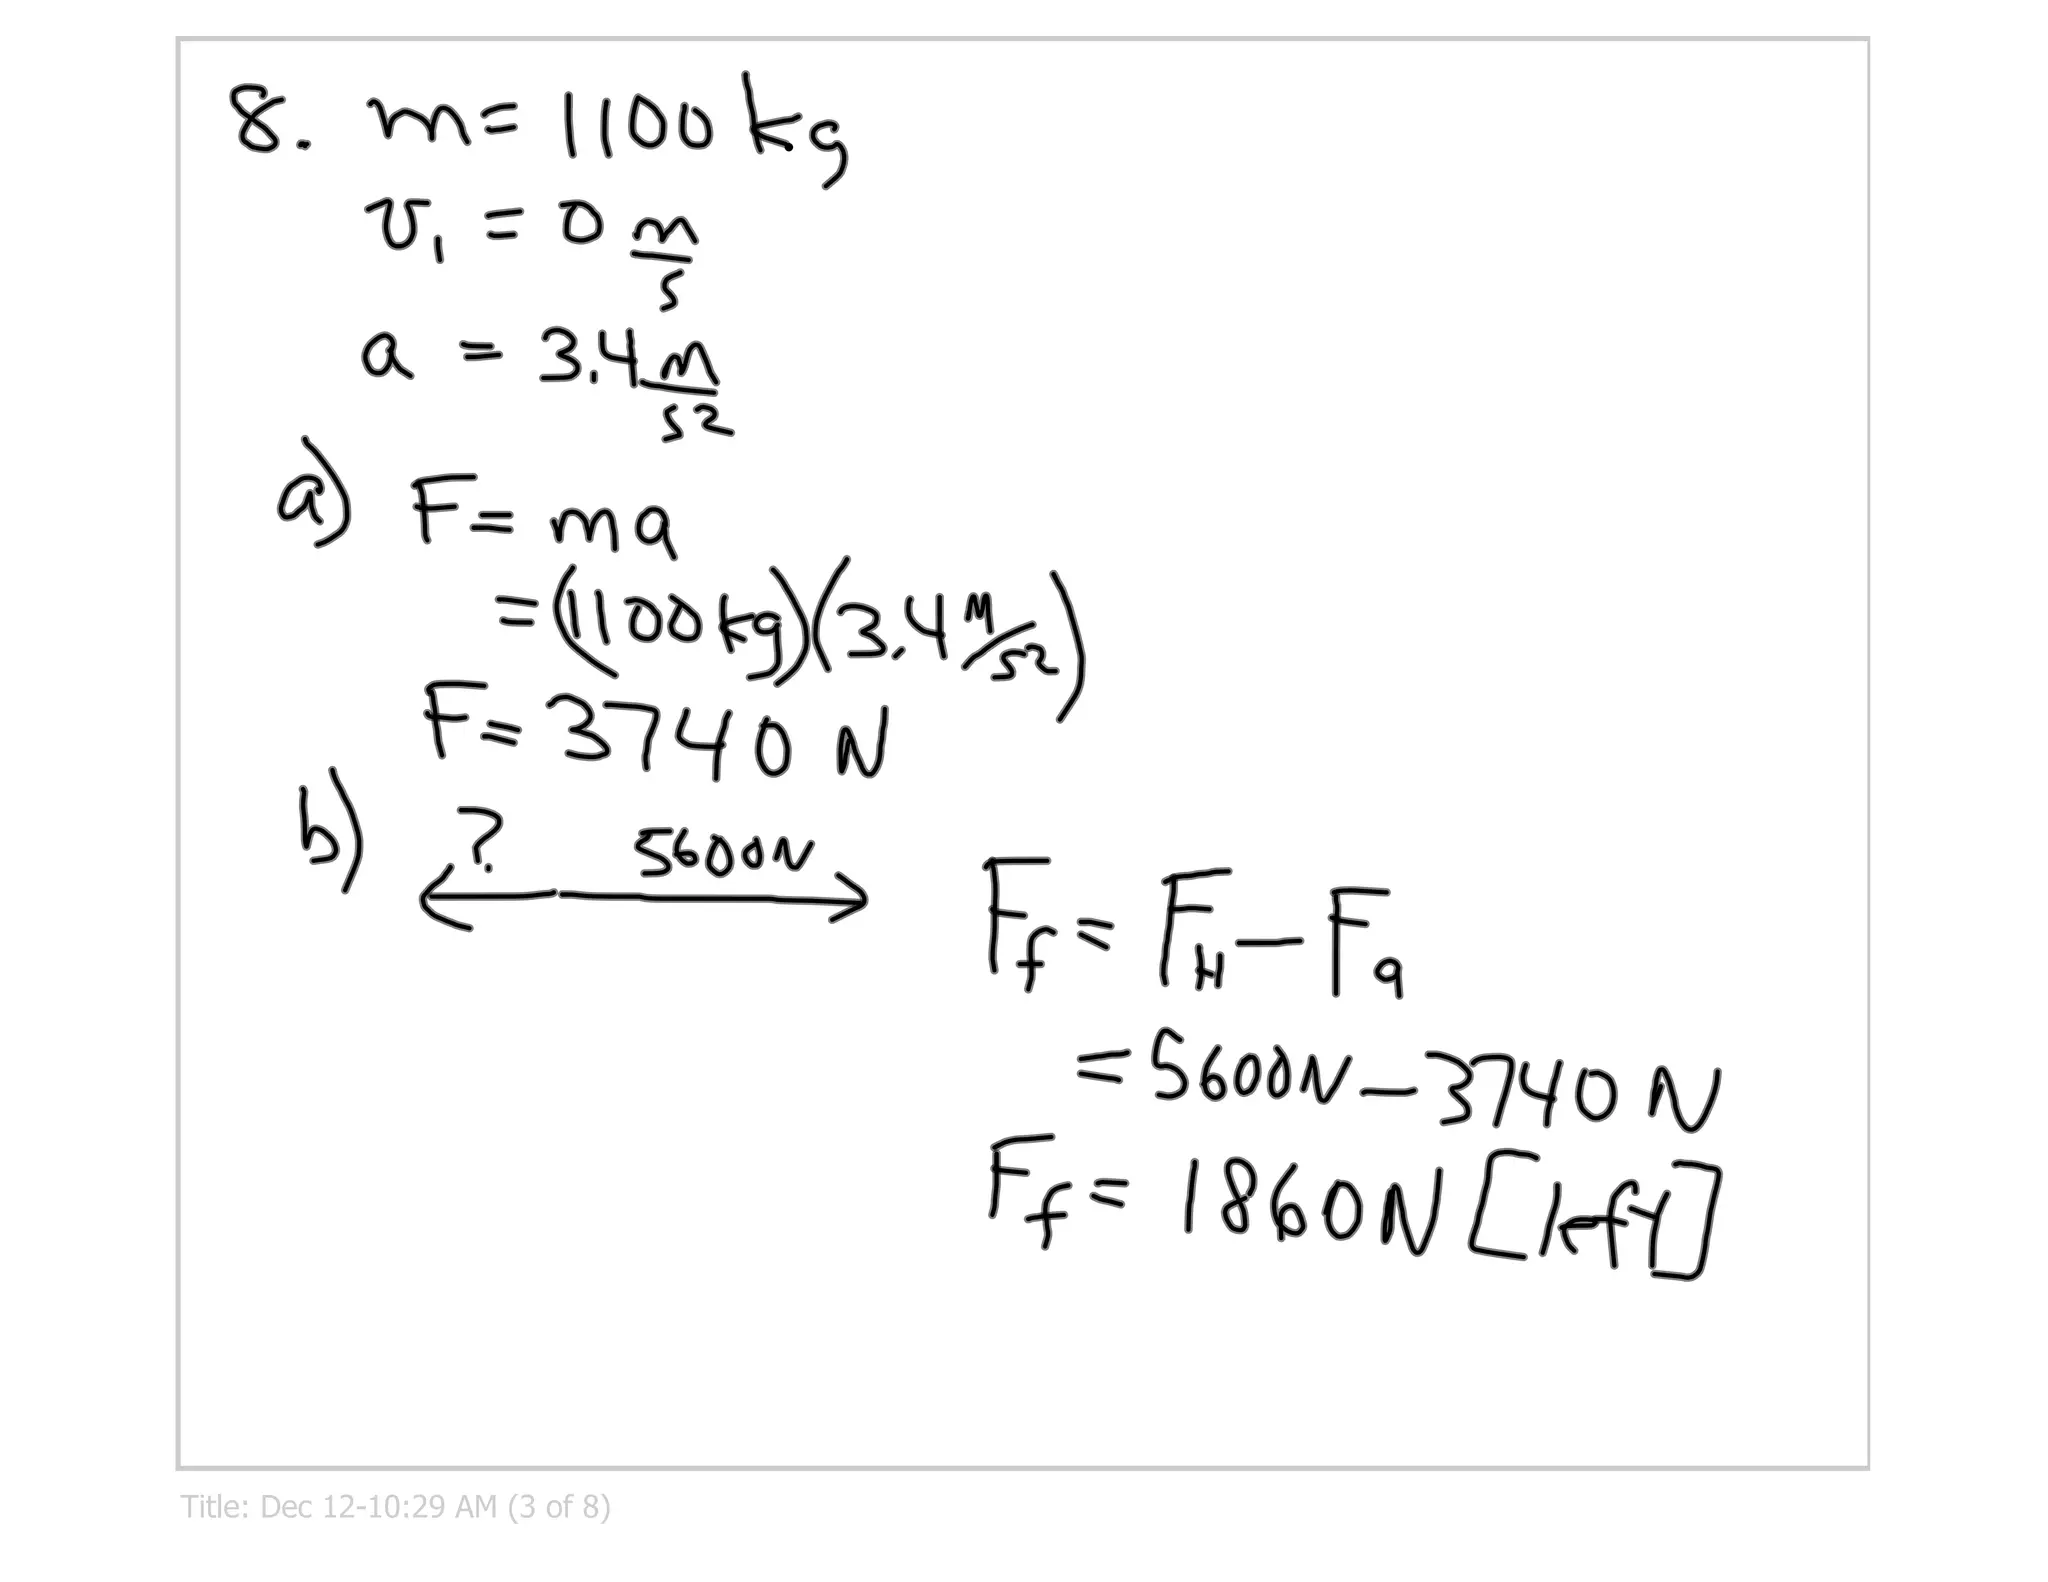 8. m = 1100 kg
v₁ = 0 m/s
a = 3.4 m/s²
a) F = ma
= (1100 kg)(3.4 m/s²)
F = 3740 N
b) ? 5600 N
F_f = F_H − F_a
= 5600 N − 3740 N
F_f = 1860 N [left]
Title: Dec 12-10:29 AM (3 of 8)